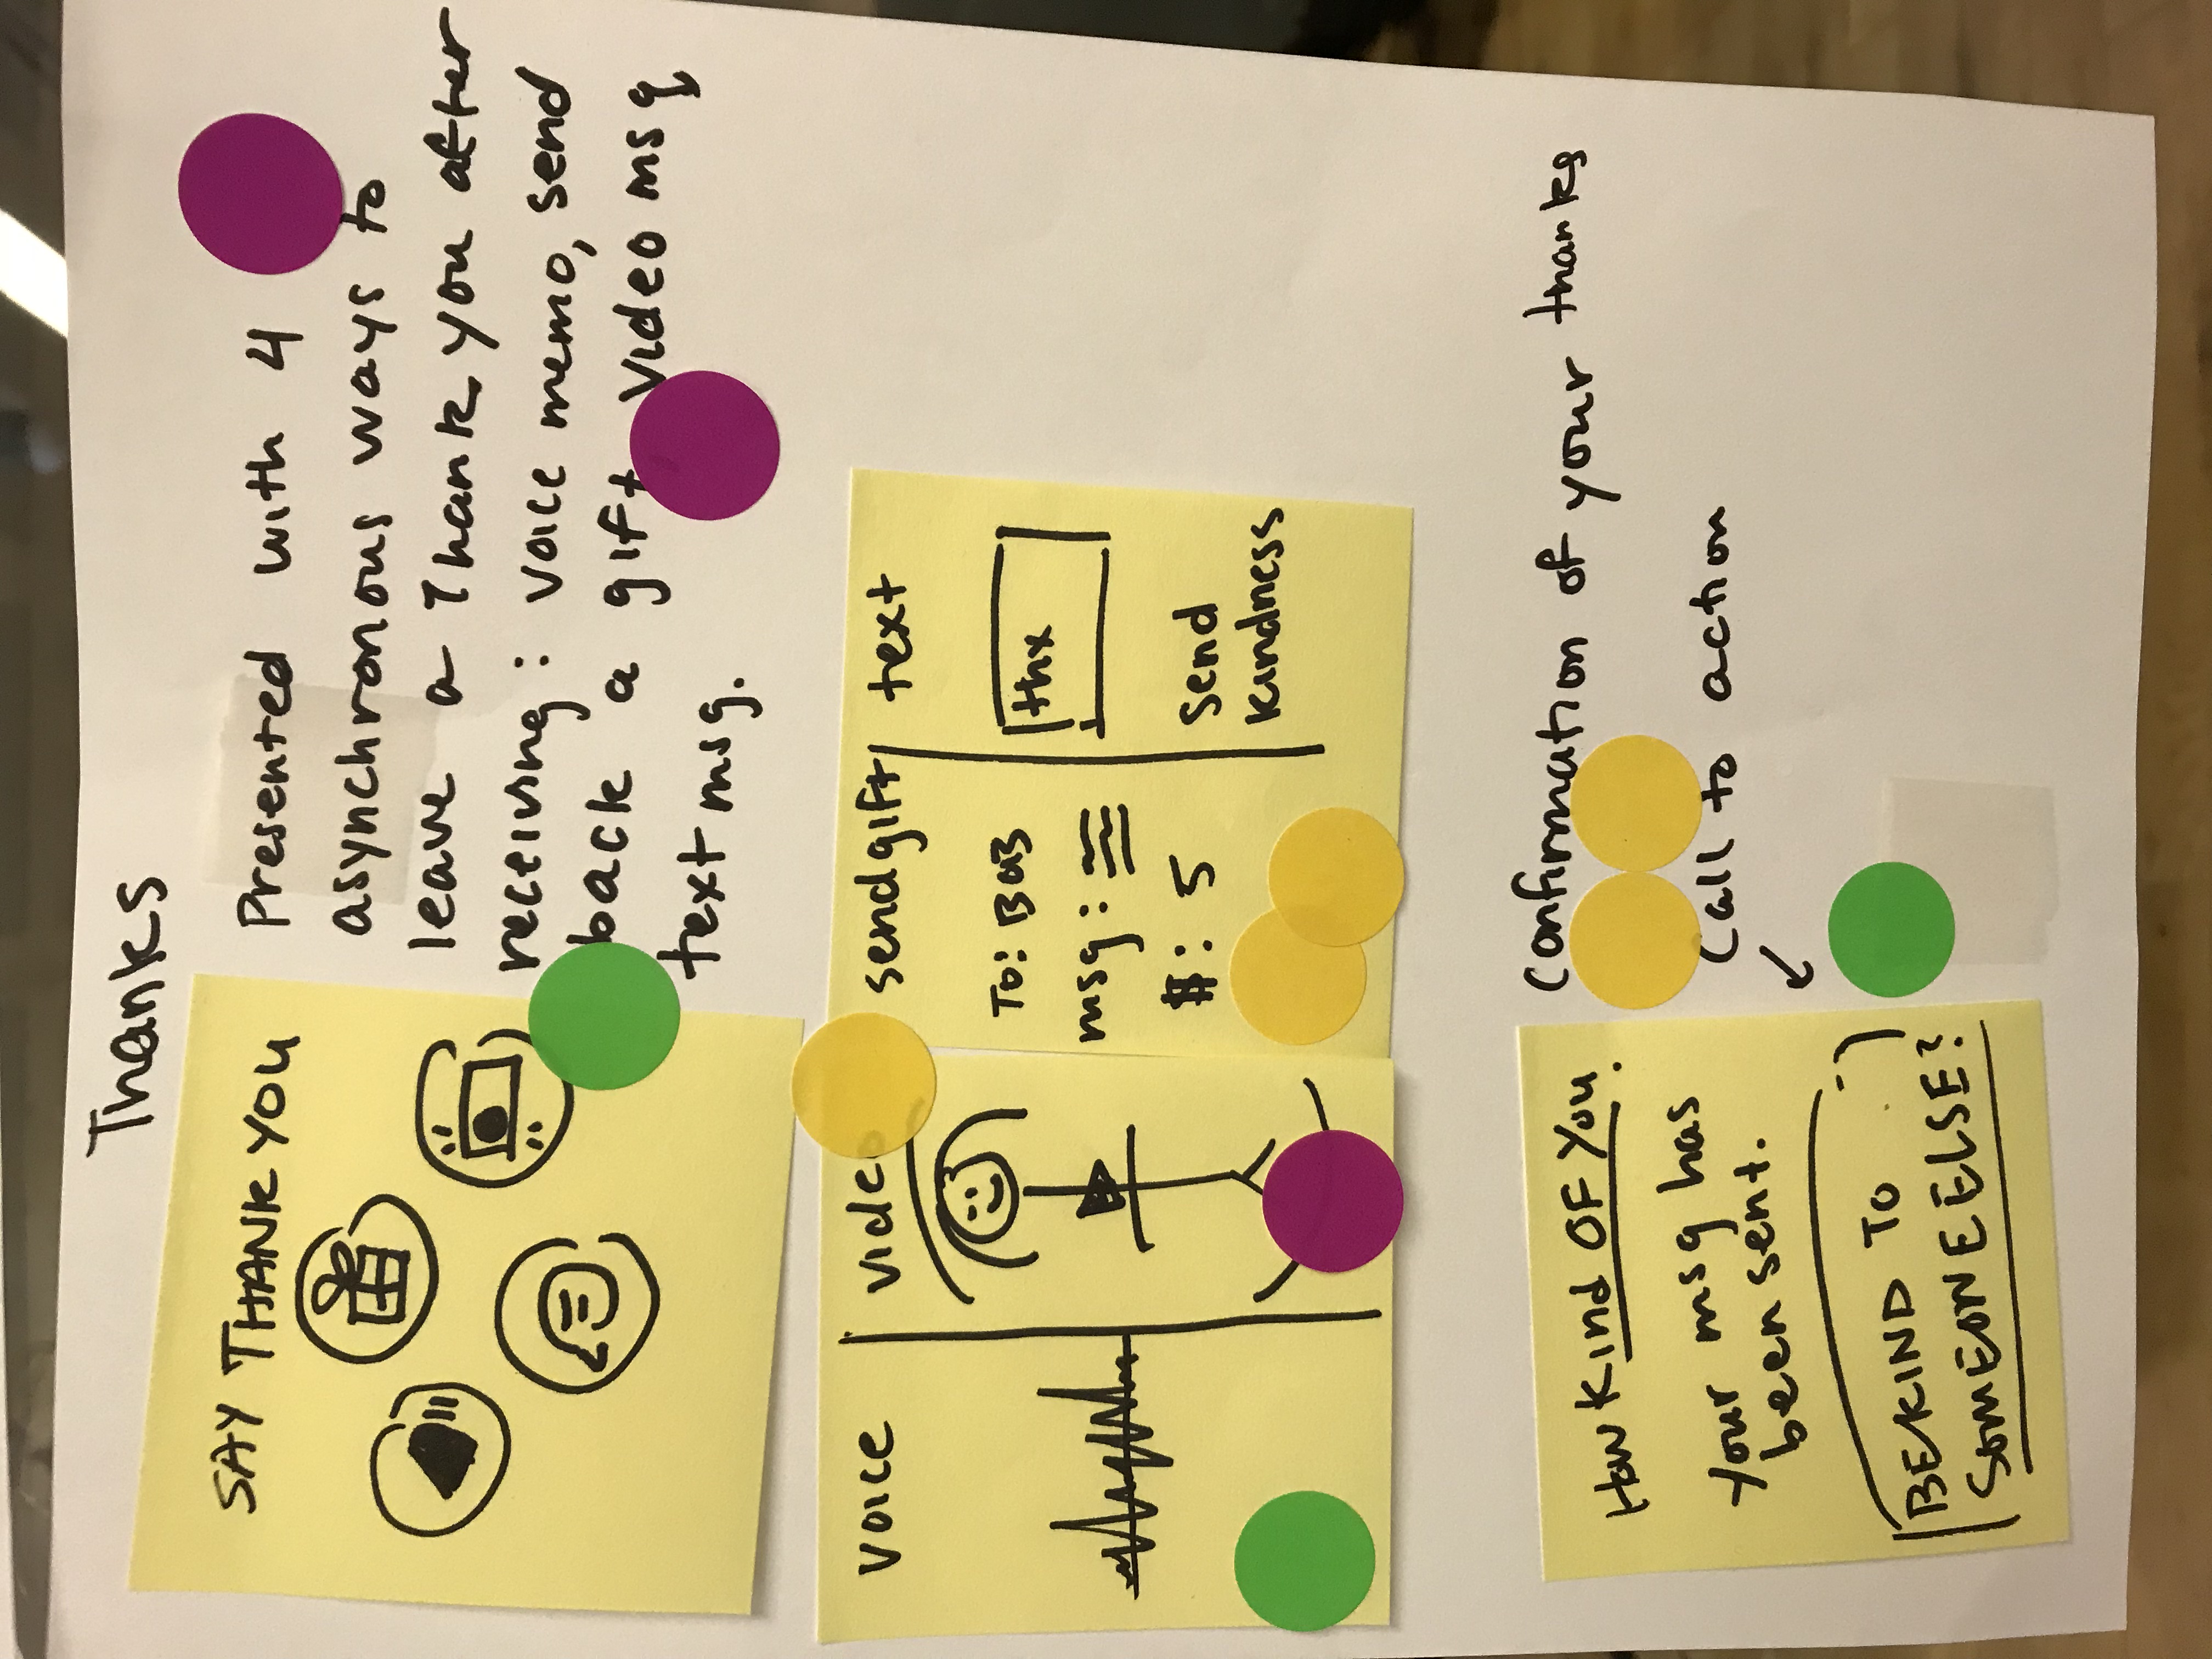 Thanks
SAY THANK YOU
Presented with 4
asynchronous ways to
leave a Thank you after
receiving: voice memo, send
back a gift, video msg
text msg.
voice
video
sendgift
To: BOB
msg:
$: 5
text
thx
Send
kindness
How Kind OF You.
Your msg has
been sent.
BE KIND TO
SOMEONE ELSE?
Confirmation of your thanks
Call to action